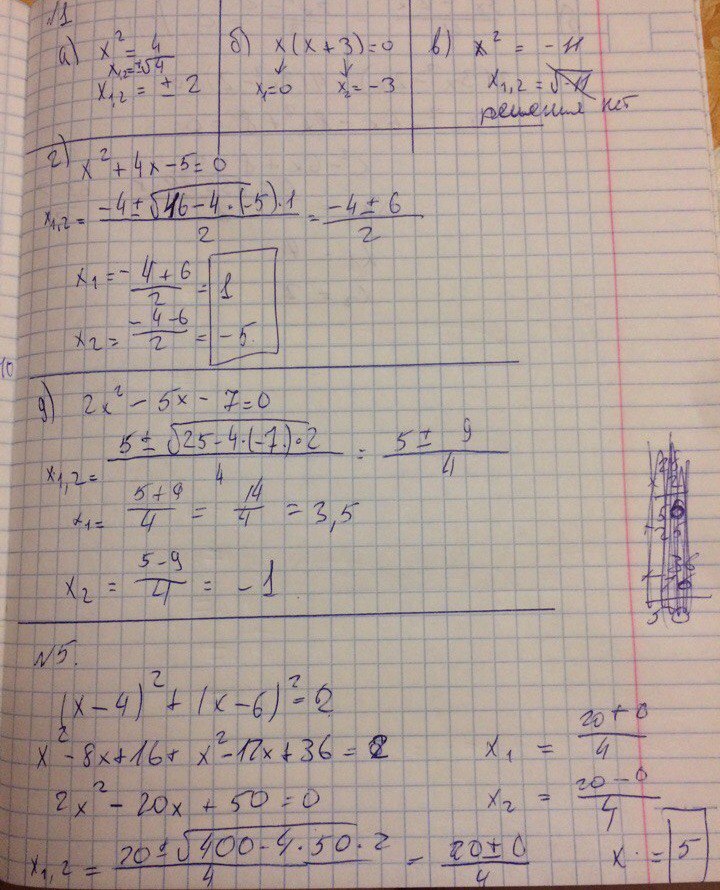 №1
а) x² = 4
x₁,₂=±√4
x₁,₂ = ± 2
б) x(x+3)=0
x₁=0 x₂=-3
в) x² = -11
x₁,₂ = √-11
решения нет
г) x²+4x-5=0
x₁,₂ = (-4±√16-4·(-5)·1)/2 = (-4±6)/2
x₁ = (-4+6)/2 = 1
x₂ = (-4-6)/2 = -5
д) 2x²-5x-7=0
x₁,₂ = (5±√25-4·(-7)·2)/4 = (5±9)/4
x₁ = (5+9)/4 = 14/4 = 3,5
x₂ = (5-9)/4 = -1
№5.
(x-4)²+(x-6)²=2
x²-8x+16+x²-12x+36=2
2x²-20x+50=0
x₁,₂ = (20±√400-4·50·2)/4 = (20±0)/4
x₁ = (20+0)/4
x₂ = (20-0)/4
x = 5